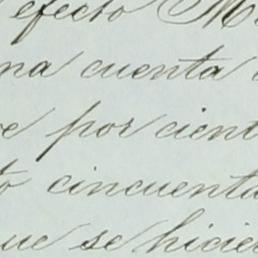 efecto
na cuenta
e por cient
to cincuenta
ue se hicie